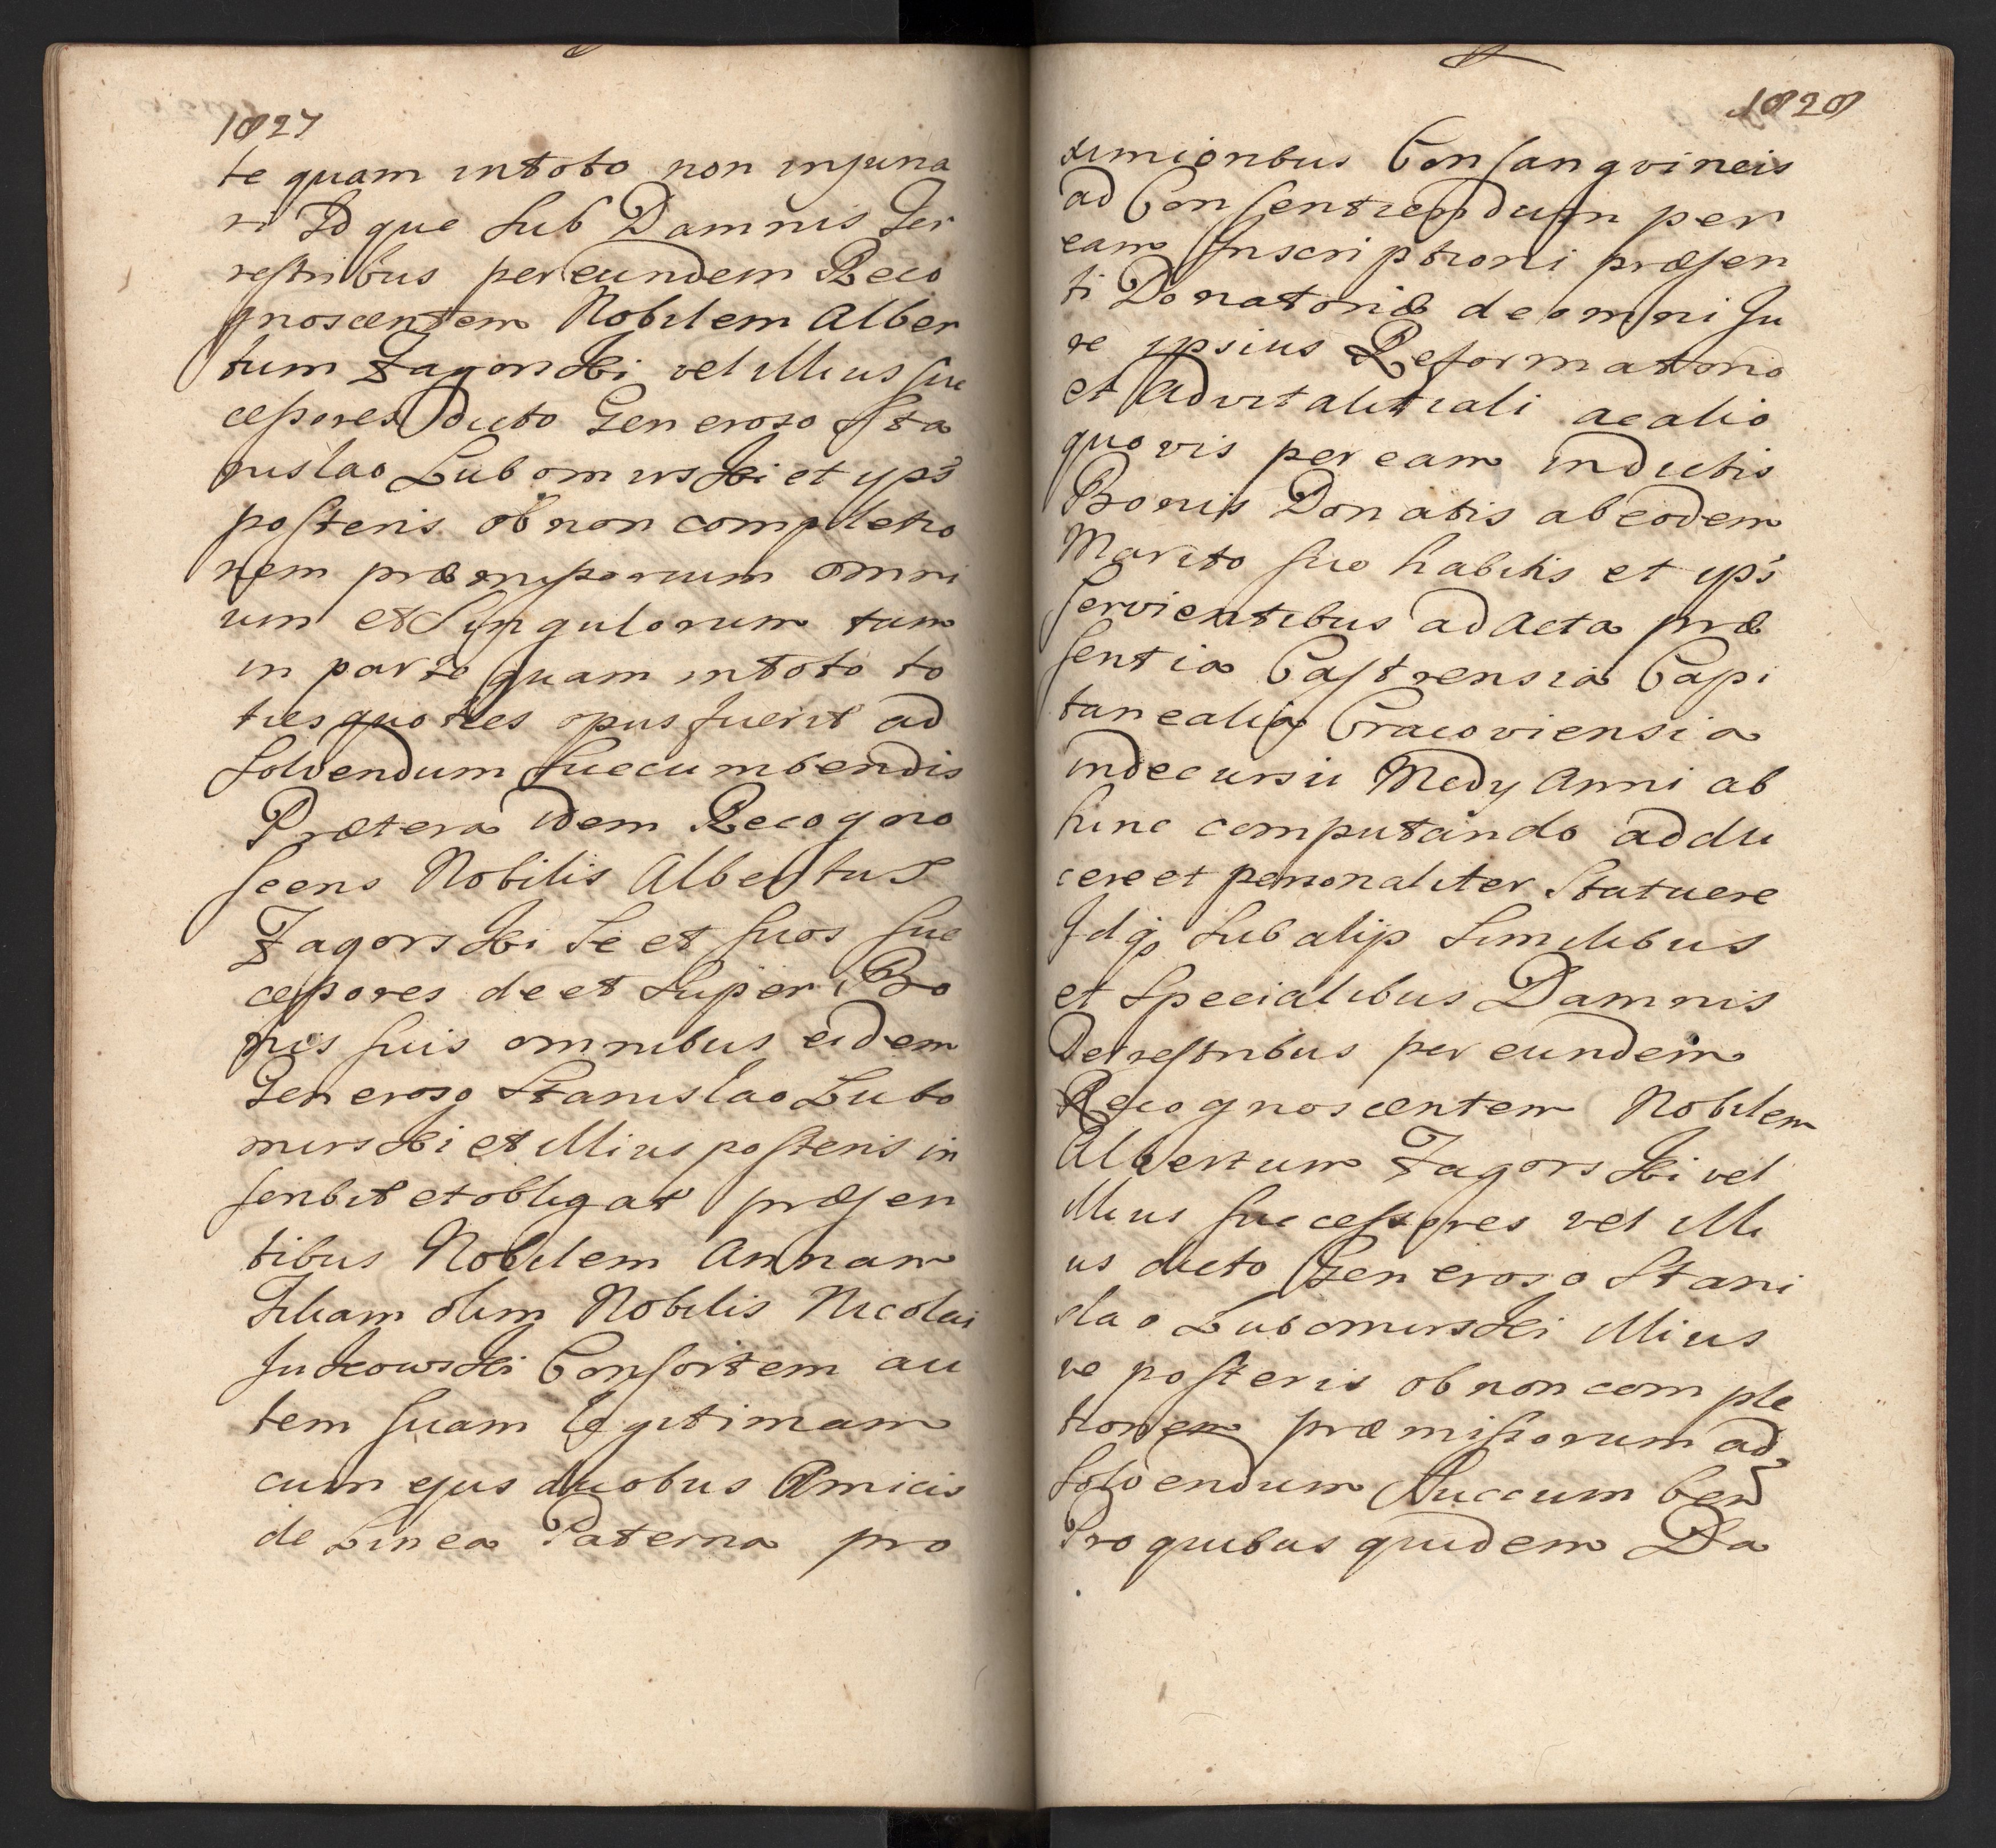 1827
te quam in toto non injuria
ri Idque sub Damnis Ter
restribus per eundem Reco
gnoscentem Nobilem Alber
tum Zagorski vel illius suc
cessores dicto Generoso Sta
nislao Lubomirski et ips̃
posteris ob non completio
nem præmissorum omni
um et Singulorum tam
in parte quam in toto to
ties quoties opus fuerit ad
solvendum succumbendis
Præterea idem Recogno
scens Nobilis Albertus
Zagorski se et suos suc
cessores de et super Bo
nis suis omnibus eidem
Generoso Stanislao Lubo
mirski et illius posteris in
scribit et obligat præsen
tibus Nobilem Annam
Filiam olim Nobilis Nicolai
Consortem au
tem suam legitimam
cum ejus duobus Amicis
de Linea Paterna pro
1828
ximionbus Consangvineis
ad Consentiendum per
eam Inscriptioni præsen
ti Donatoriæ de omni Ju
re ipsius Reformatorio
et advitalitiali ac alio
quovis per eam in dictis
Bonis Donatis ab eodem
Marito suo habitis et ips̃
servientibus ad Acta præ
sentia Castrensia Capi
tanealia Cracoviensia
in decursu Medy Anni ab
hinc computando addu
cere et personaliter Statuere
Idq̃ sub alijs similibus
et specialibus Damnis
Terrestribus per eundem
Recognoscentem Nobilem
Albertum Zagorski vel
illius successores vel illi
us dicto Generoso Stani
slao Lubomirski illius
ve posteris ob non comple
tionem præmissorum ad
solvendum succumben̄d
Pro quibus quidem Da